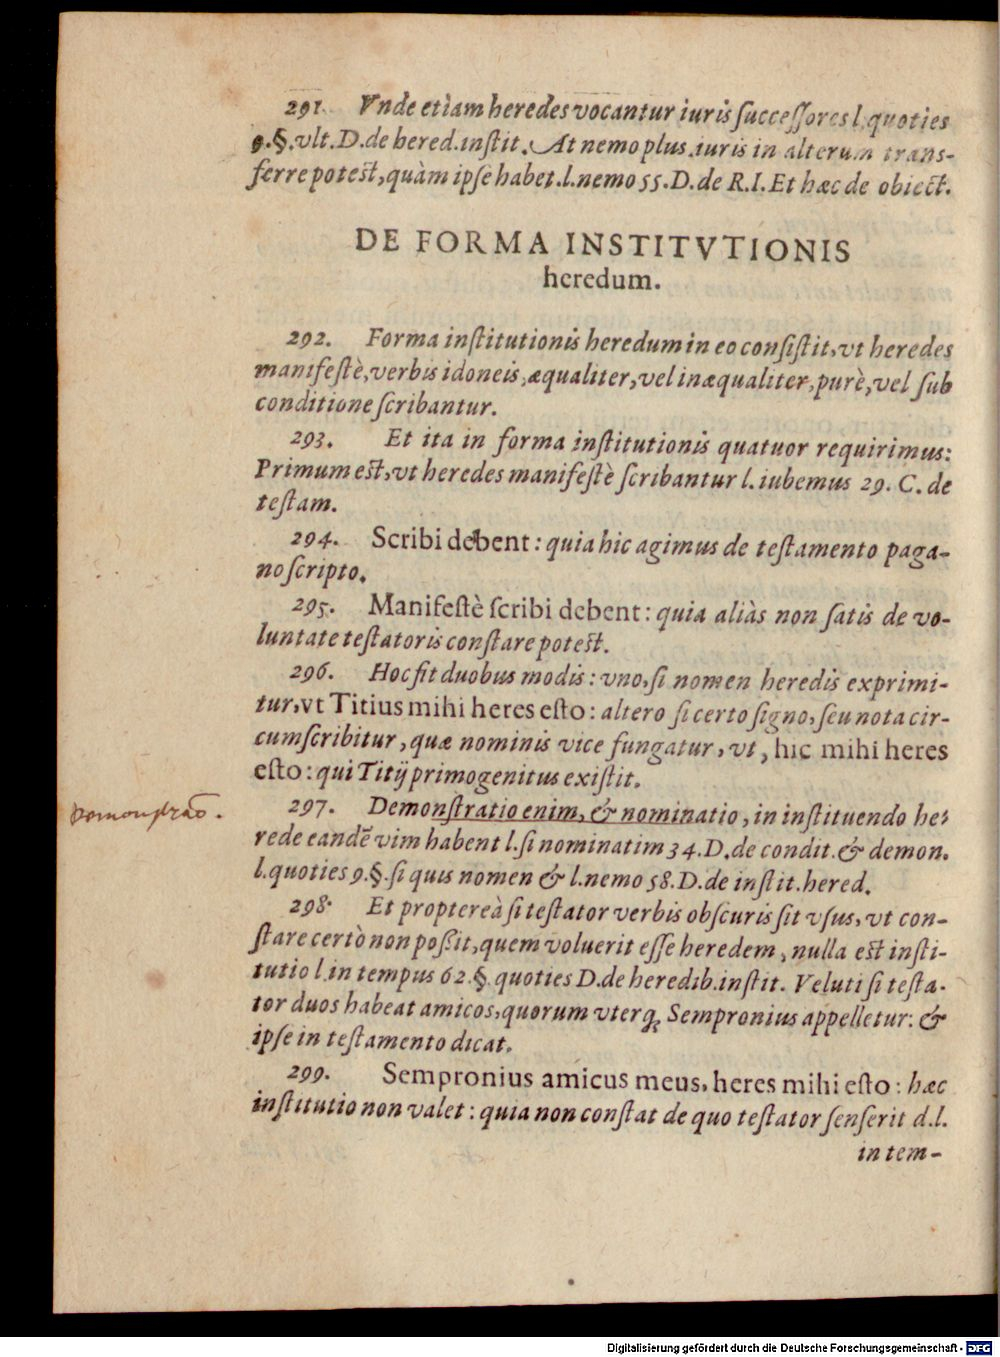 291. Vnde etiam heredes vocantur iuris ſucceſſores l. quoties
9. §. vlt. D. de hered. inſtit. At nemo plus iuris in alterum trans-
ferre poteſt, quàm ipſe habet. l. nemo 55. D. de R. I. Et hæc de obiect.
DE FORMA INSTITVTIONIS
heredum.
292. Forma inſtitutionis heredum in eo conſiſtit, vt heredes
manifeſtè, verbis idoneis, æqualiter, vel inæqualiter, purè, vel ſub
conditione ſcribantur.
293. Et ita in forma inſtitutionis quatuor requirimus:
Primum eſt, vt heredes manifeſtè ſcribantur l. iubemus 29. C. de
teſtam.
294. Scribi debent: quia hic agimus de teſtamento paga-
no ſcripto.
295. Manifeſtè ſcribi debent: quia aliàs non ſatis de vo-
luntate teſtatoris conſtare poteſt.
296. Hoc fit duobus modis: vno, ſi nomen heredis exprimi-
tur, vt Titius mihi heres eſto: altero ſi certo ſigno, ſeu nota cir-
cumſcribitur, quæ nominis vice fungatur, vt, hic mihi heres
eſto: qui Titij primogenitus exiſtit.
297. Demonſtratio enim, & nominatio, in inſtituendo he-
rede eandē vim habent l. ſi nominatim 34. D. de condit. & demon.
l. quoties 9. §. ſi quis nomen & l. nemo 58. D. de inſtit. hered.
298. Et propterea ſi teſtator verbis obſcuris ſit vſus, vt con-
ſtare certò non poßit, quem voluerit eſſe heredem, nulla eſt inſti-
tutio l. in tempus 62. §. quoties D. de heredib. inſtit. Veluti ſi teſta-
tor duos habeat amicos, quorum vterq; Sempronius appelletur: &
ipſe in teſtamento dicat.
299. Sempronius amicus meus, heres mihi eſto: hæc
inſtitutio non valet: quia non conſtat de quo teſtator ſenſerit d. l.
in tem-
Digitalisierung gefördert durch die Deutsche Forschungsgemeinschaft - DFG